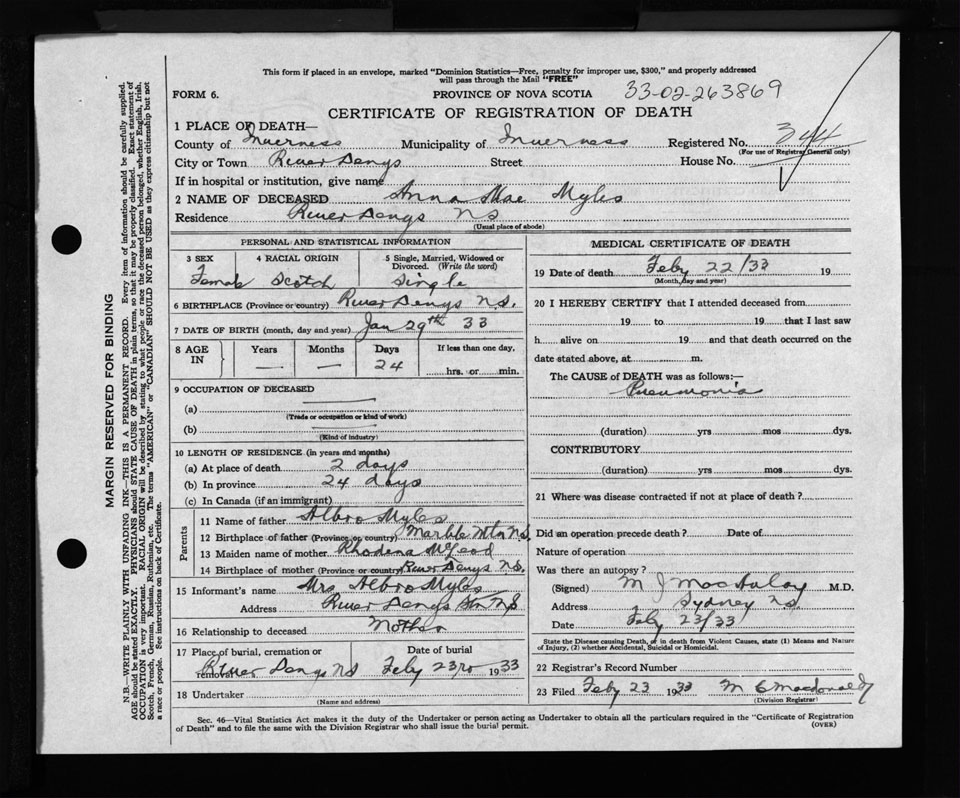 This form if placed in an envelope, marked "Dominion Statistics—Free, penalty for improper use, $300," and properly addressed
will pass through the Mail "FREE"
FORM 6.
PROVINCE OF NOVA SCOTIA
33-02-263869
CERTIFICATE OF REGISTRATION OF DEATH
1 PLACE OF DEATH—
County of Inverness Municipality of Inverness Registered No. 344
(For use of Registrar General only)
City or Town River Denys Street House No.
If in hospital or institution, give name
2 NAME OF DECEASED Anna Mae Myles
Residence River Denys NS
(Usual place of abode)
PERSONAL AND STATISTICAL INFORMATION
3 SEX 4 RACIAL ORIGIN 5 Single, Married, Widowed or
Divorced. (Write the word)
Female Scotch Single
6 BIRTHPLACE (Province or country) River Denys N.S.
7 DATE OF BIRTH (month, day and year) Jan 29th 33
8 AGE IN Years Months Days If less than one day,
— — 24 hrs. or min.
9 OCCUPATION OF DECEASED
(a)
(Trade or occupation or kind of work)
(b)
(Kind of industry)
10 LENGTH OF RESIDENCE (in years and months)
(a) At place of death 2 days
(b) In province 24 days
(c) In Canada (if an immigrant)
Parents
11 Name of father Albro Myles
12 Birthplace of father (Province or country) Marble Mtn N.S.
13 Maiden name of mother Rhodena McLeod
14 Birthplace of mother (Province or country) River Denys N.S.
15 Informant's name Mrs Albro Myles
Address River Denys Stn N.S
16 Relationship to deceased Mother
17 Place of burial, cremation or removal Date of burial
River Denys NS Feby 23rd 1933
18 Undertaker
(Name and address)
MEDICAL CERTIFICATE OF DEATH
19 Date of death Feby 22/33 19
(Month, day and year)
20 I HEREBY CERTIFY that I attended deceased from
19 to 19 that I last saw
h alive on 19 and that death occurred on the
date stated above, at m.
The CAUSE of DEATH was as follows:—
Pneumonia
(duration) yrs mos dys.
CONTRIBUTORY
(duration) yrs mos dys.
21 Where was disease contracted if not at place of death?
Did an operation precede death? Date of
Nature of operation
Was there an autopsy?
(Signed) M J MacAulay M.D.
Address Sydney N.S.
Date Feby 23/33
State the Disease causing Death, or in death from Violent Causes, state (1) Means and Nature
of Injury, (2) whether Accidental, Suicidal or Homicidal.
22 Registrar's Record Number
23 Filed Feby 23 1933 M C Macdonald
(Division Registrar)
Sec. 46—Vital Statistics Act makes it the duty of the Undertaker or person acting as Undertaker to obtain all the particulars required in the "Certificate of Registration
of Death" and to file the same with the Division Registrar who shall issue the burial permit.
(OVER)
MARGIN RESERVED FOR BINDING
N.B.—WRITE PLAINLY WITH UNFADING INK—THIS IS A PERMANENT RECORD. Every item of information should be carefully supplied.
AGE should be stated EXACTLY. PHYSICIANS should STATE CAUSE OF DEATH in plain terms, so that it may be properly classified. Exact statement of
OCCUPATION is very important. RACIAL ORIGIN will be described by stating to what people or race the deceased person belonged, whether English, Irish,
Scotch, French, German, Russian, Ruthenian, etc. The terms "AMERICAN" or "CANADIAN" SHOULD NOT BE USED as they express citizenship but not
a race or people. See instructions on back of Certificate.